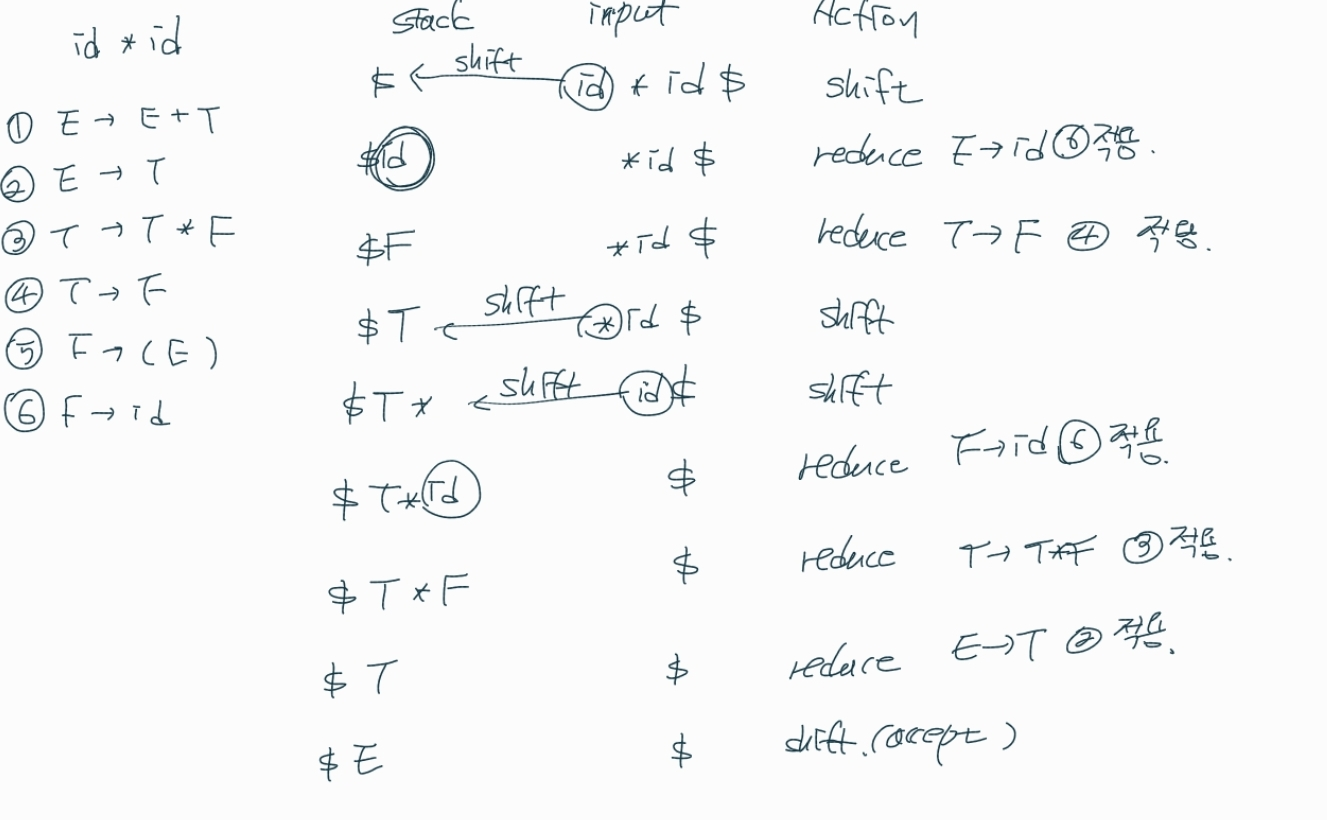 id * id
① E → E + T
② E → T
③ T → T * F
④ T → F
⑤ F → ( E )
⑥ F → id
stack input Action
$ ← shift id * id $ shift
$id *id $ reduce F→id ⑥ 적용.
$F *id $ reduce T→F ④ 적용.
$T ← shift *id $ shift
$T* ← shift id$ shift
$ T*id $ reduce F→id ⑥ 적용.
$ T*F $ reduce T→T*F ③ 적용.
$ T $ reduce E→T ② 적용.
$ E $ shift.(accept)